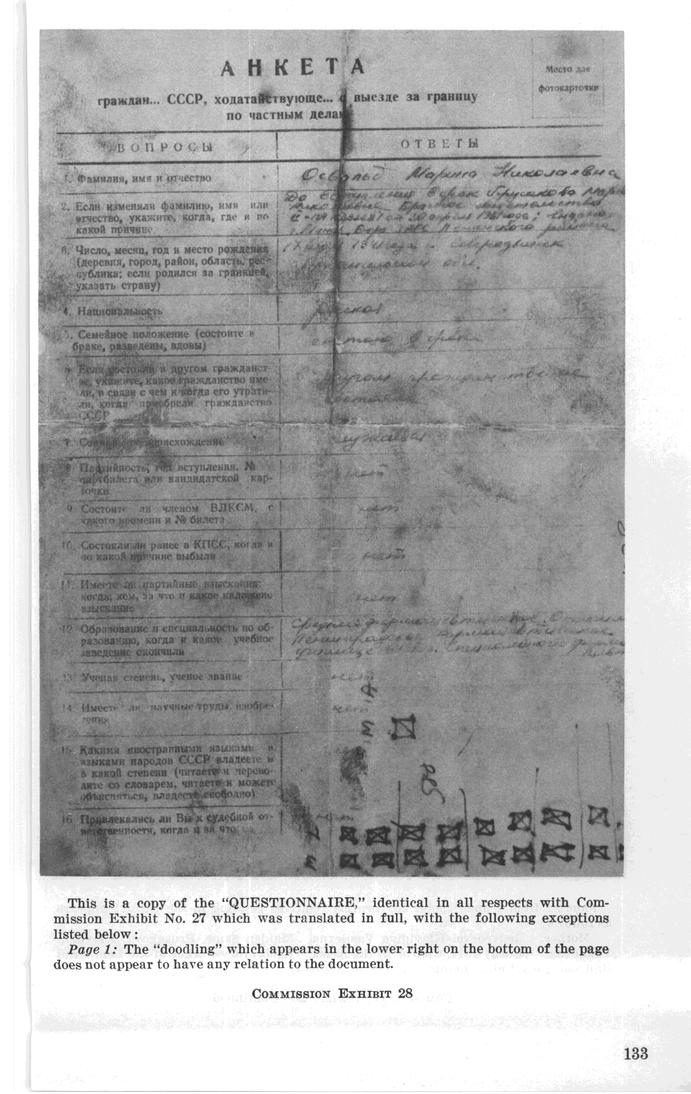 АНКЕТА
Место для
фотокарточки
граждан... СССР, ходатайствующе... о выезде за границу
по частным делам
ВОПРОСЫ
ОТВЕТЫ
1. Фамилия, имя и отчество
Освальд Марина Николаевна
2. Если изменяли фамилию, имя или
отчество, укажите, когда, где и по
какой причине
До вступления в брак Прусакова
3. Число, месяц, год и место рождения
(деревня, город, район, область, рес-
публика; если родился за границей,
указать страну)
4. Национальность
русская
5. Семейное положение (состоите в
браке, разведены, вдовы)
состою в браке
6. Если состояли в другом гражданст-
ве, укажите, какое гражданство име-
ли, в связи с чем и когда его утрати-
ли, когда приобрели гражданство
СССР
В другом гражданстве не
состояла
7. Социальное происхождение
служащая
8. Партийность, год вступления, №
партбилета или кандидатской кар-
точки
нет
9. Состоите ли членом ВЛКСМ, с
какого времени и № билета
нет
10. Состояли ли ранее в КПСС, когда и
по какой причине выбыли
нет
11. Имеете ли партийные взыскания:
когда, кем, за что и какое наложено
взыскание
нет
12. Образование и специальность по об-
разованию, когда и какое учебное
заведение окончили
13. Ученая степень, ученое звание
нет
14. Имеете ли научные труды, изобре-
тения
нет
15. Какими иностранными языками и
языками народов СССР владеете и
в какой степени (читаете и перево-
дите со словарем, читаете и можете
объясняться, владеете свободно)
16. Привлекались ли Вы к судебной от-
ветственности, когда и за что
нет
This is a copy of the “QUESTIONNAIRE,” identical in all respects with Com-
mission Exhibit No. 27 which was translated in full, with the following exceptions
listed below:
Page 1: The “doodling” which appears in the lower right on the bottom of the page
does not appear to have any relation to the document.
COMMISSION EXHIBIT 28
133